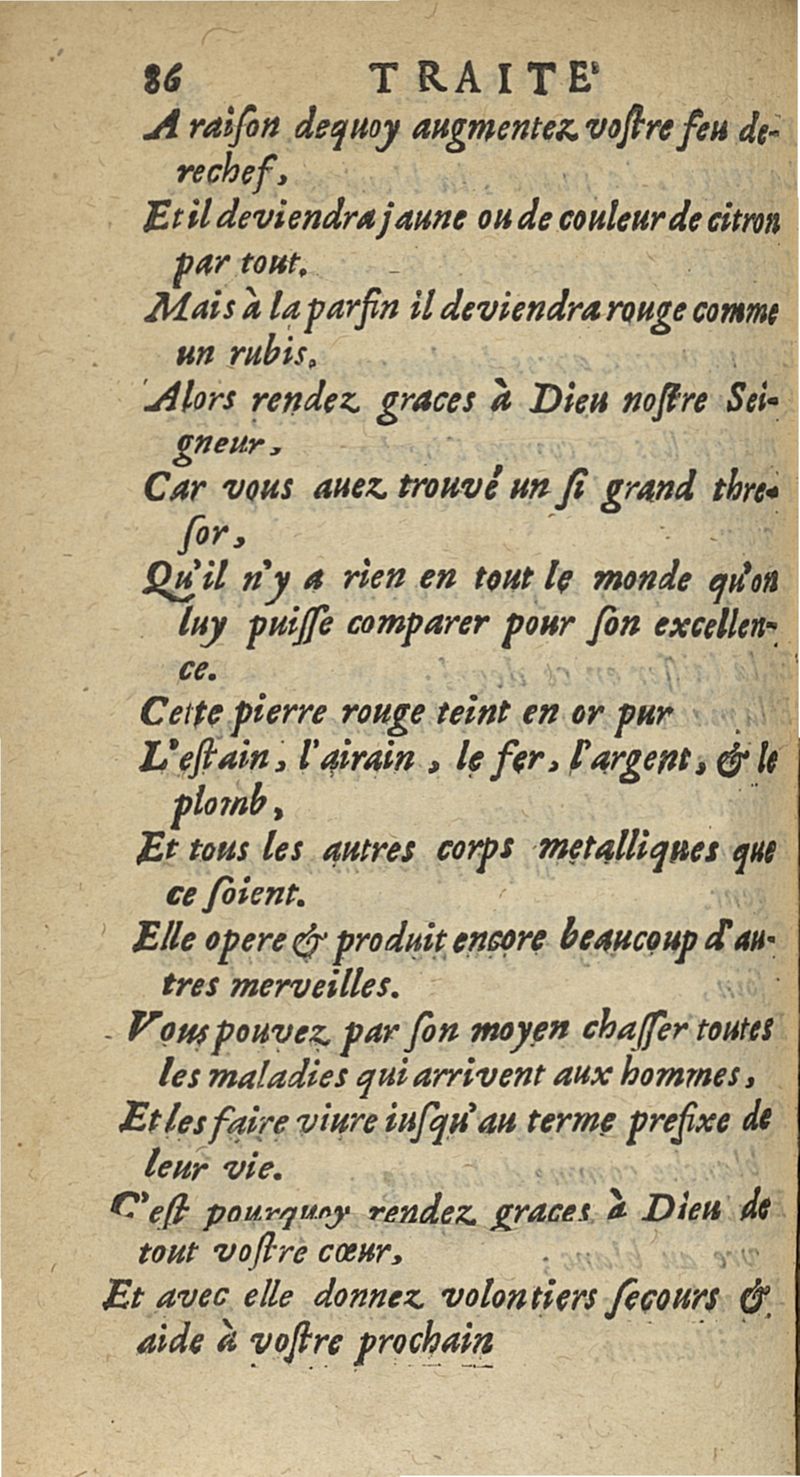 86 TRAITE'
A raiſon dequoy augmentez voſtre feu de-
rechef,
Et il deviendra jaune ou de couleur de citron
par tout.
Mais à la parfin il deviendra rouge comme
un rubis.
Alors rendez graces à Dieu noſtre Sei-
gneur,
Car vous auez trouvé un ſi grand thre-
ſor,
Qu'il n'y a rien en tout le monde qu'on
luy puiſſe comparer pour ſon excellen-
ce.
Cette pierre rouge teint en or pur
L'eſtain, l'airain, le fer, l'argent, & le
plomb,
Et tous les autres corps metalliques que
ce ſoient.
Elle opere & produit encore beaucoup d'au-
tres merveilles.
Vous pouvez par ſon moyen chaſſer toutes
les maladies qui arrivent aux hommes,
Et les faire viure iuſqu'au terme prefixe de
leur vie.
C'eſt pourquoy rendez graces à Dieu de
tout voſtre cœur,
Et avec elle donnez volontiers ſecours &
aide à voſtre prochain